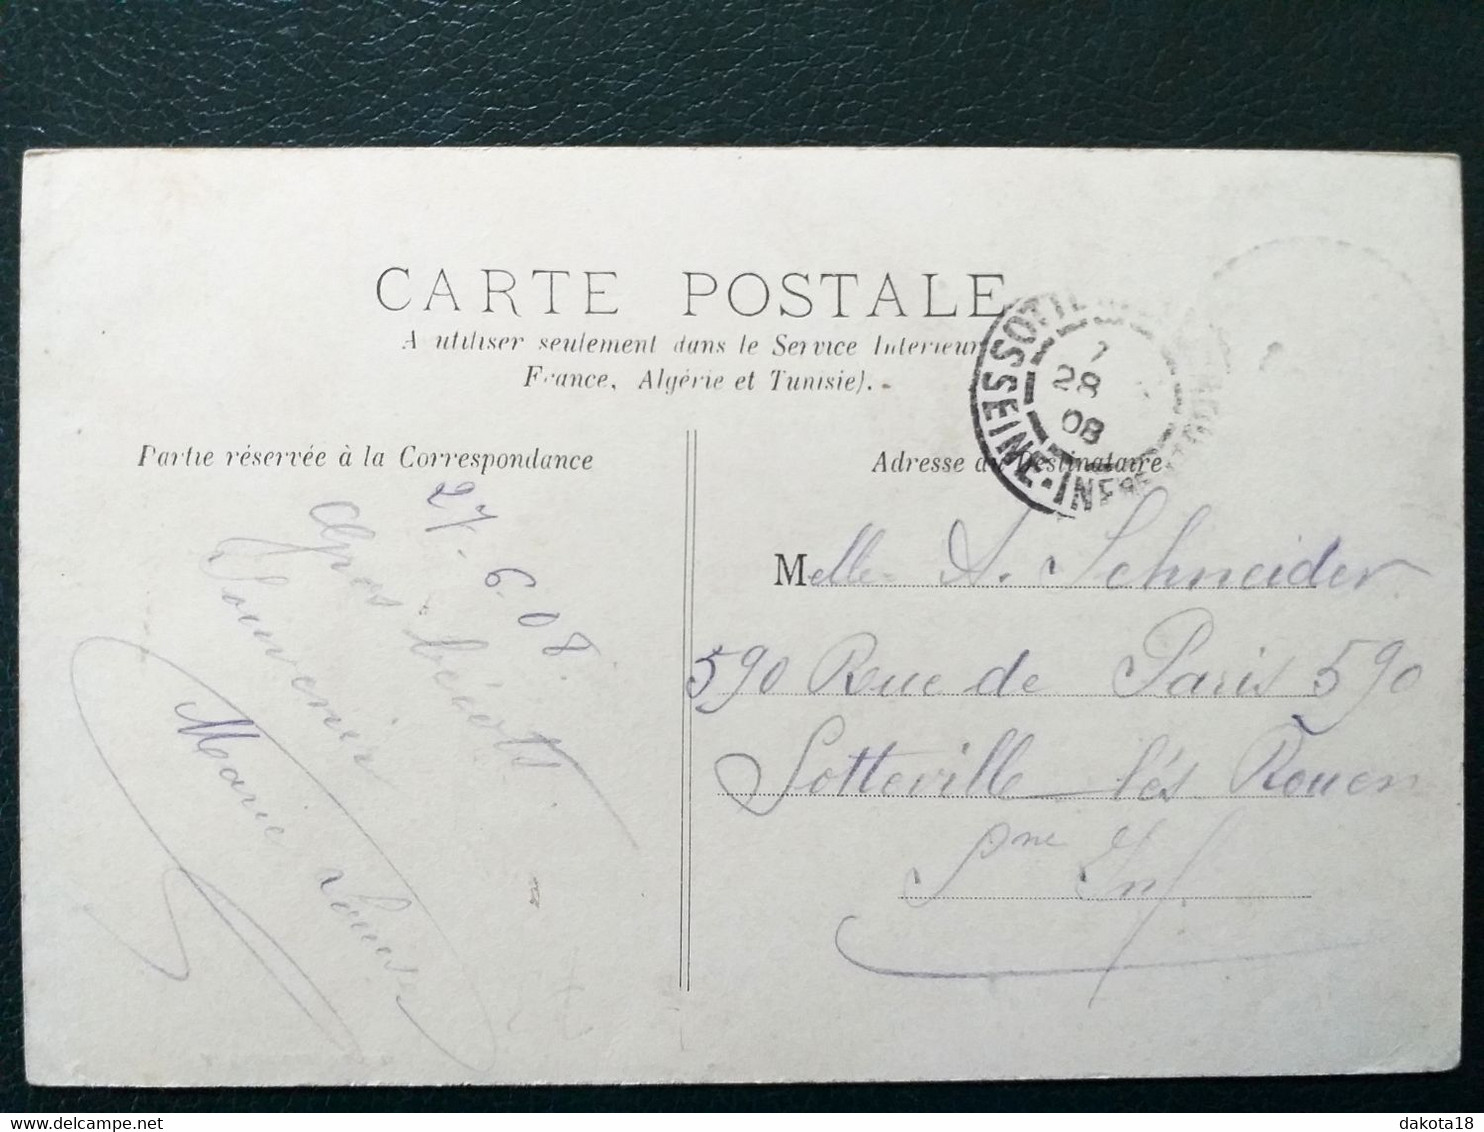 CARTE POSTALE
A utiliser seulement dans le Service Intérieur
France, Algérie et Tunisie).
Partie réservée à la Correspondance
27-6-08.
Souvenir
Marie Louise
Adresse du Destinataire
SOTTE
SEINE-INFRE
28
08
Melle A. Schneider
590 Rue de Paris 590
Sotteville lés Rouen
Sne Inf
dakota18